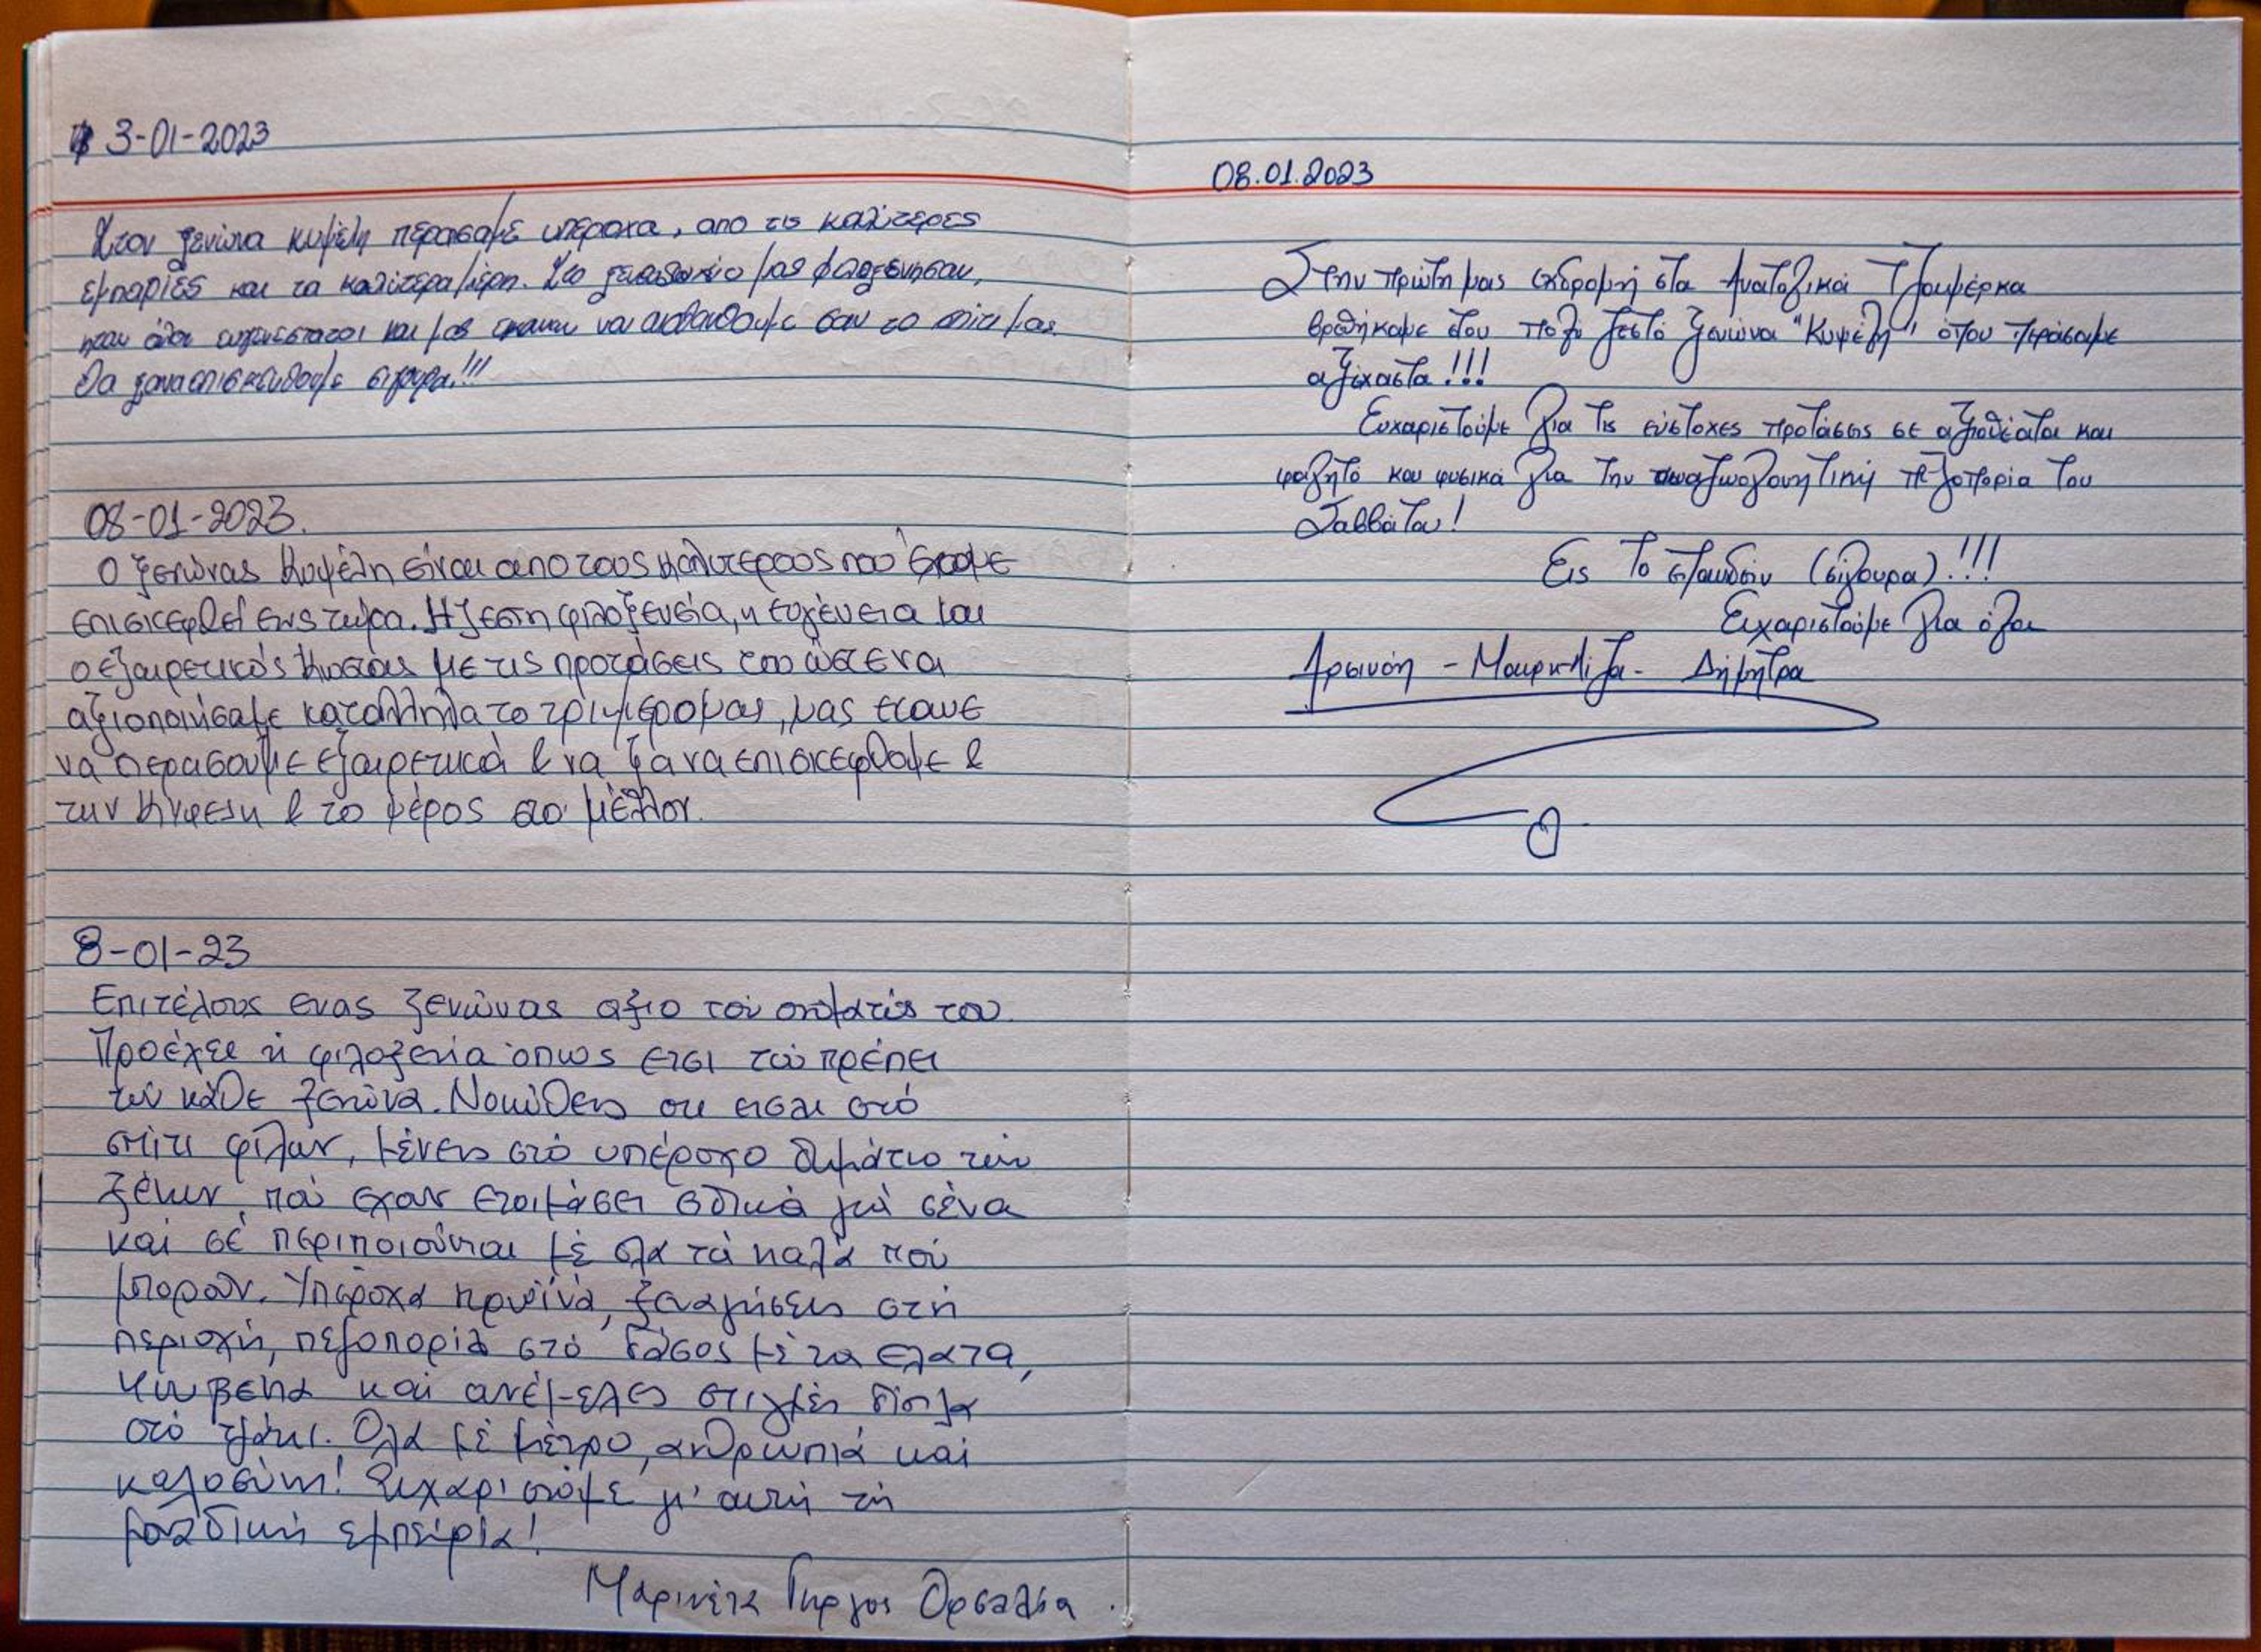 3-01-2023
Στον ξενώνα κυψέλη περάσαμε υπεροχα, απο τις καλύτερες
εμπαρίες και τα καλύτερα μέρη. Στο ξενοδοχείο μας φιλοξένησαν,
ηταν όλοι ευγενέστατοι και μας εκαναν να αισθανθούμε σαν το σπίτι μας.
Θα ξαναεπισκευθούμε σιγουρα!!!
08-01-2023.
Ο ξενώνας Κυψέλη είναι απο τους καλυτερους που έχουμε
επισκεφθεί εως τώρα. Η ζεστη φιλοξενεία, η ευγένεια και
ο εξαιρετικός Κώστας με τις προτάσεις του ώστε να
αξιοποιήσαμε κατάλληλα το τριήμερο μας, μας εκανε
να περασουμε εξαιρετικά & να ξαναεπισκεφθουμε &
την Κυψελη & το μέρος στο μέλλον.
8-01-23
Επιτέλους ενας ξενώνας αξιο του ονόματός του
Προέχει η φιλοξενία όπως ετσι του πρέπει
του κάθε ξενώνα. Νοιώθεις οτι εισαι στό
σπίτι φίλων, μένεις στό υπέροχο δωμάτιο των
ξένων, που εχουν ετοιμάσει ειδικά γιά σένα
καί σέ περιποιούνται μέ ολα τά καλά πού
μπορούν. Υπέροχα πρωϊνά, ξεναγήσεις στή
περιοχή, πεζοπορία στό δάσος μέ τα ελατα,
και ανέμελες στιγμές δίπλα
στό τζάκι. Ολα μέ μέτρο, ανθρωπιά καί
καλοσύνη! Ευχαριστούμε γι' αυτή τή
μοναδική εμπειρία!
Μαρινέτα Γιώργος Ορσαλία.
08.01.2023
Στην πρώτη μας εκδρομή στα Ανατολικά Τζουμέρκα
βρεθήκαμε στον πολύ ζεστό ξενώνα "Κυψέλη" όπου περάσαμε
αξέχαστα!!!
Ευχαριστούμε για τις εύστοχες προτάσεις σε αξιοθέατα και
φαγητό και φυσικά για την αναζωογονητική πεζοπορία του
Σαββάτου!
Εις το επανιδείν (σίγουρα)!!!
Ευχαριστούμε για όλα
Αρσινόη - Μαιρη-Λίζα - Δήμητρα